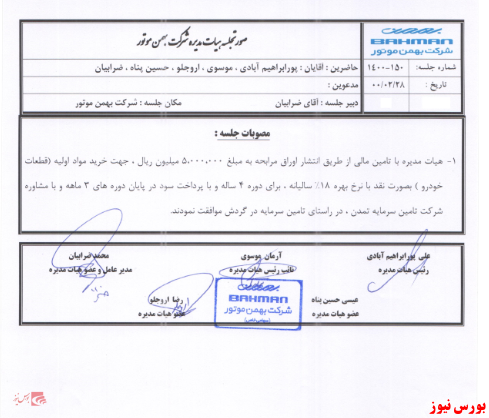 صورتجلسه هیات مدیره شرکت بهمن موتور
BAHMAN
شرکت بهمن موتور
شماره جلسه: ۱۵۰-۱۴۰۰
حاضرین : آقایان : پورابراهیم آبادی ، موسوی ، اروجلو ، حسین پناه ، ضرابیان
تاریخ : ۰۰/۰۳/۲۸
مدعوین :
دبیر جلسه : آقای ضرابیان
مکان جلسه : شرکت بهمن موتور
مصوبات جلسه :
۱- هیات مدیره با تامین مالی از طریق انتشار اوراق مرابحه به مبلغ ۵,۰۰۰,۰۰۰ میلیون ریال ، جهت خرید مواد اولیه (قطعات
خودرو ) بصورت نقد با نرخ بهره ۱۸٪ سالیانه ، برای دوره ۴ ساله و با پرداخت سود در پایان دوره های ۳ ماهه و با مشاوره
شرکت تامین سرمایه تمدن ، در راستای تامین سرمایه در گردش موافقت نمودند.
علی پورابراهیم آبادی
رئیس هیات مدیره
آرمان موسوی
نائب رئیس هیات مدیره
محمد ضرابیان
مدیر عامل و عضو هیات مدیره
عیسی حسین پناه
عضو هیات مدیره
رضا اروجلو
عضو هیات مدیره
BAHMAN
شرکت بهمن موتور
بورس نیوز
بورس نیوز